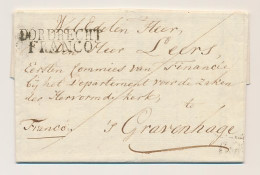 WelEdelen Heer,
DORDRECHT
FRANCO
Heer Leers,
Eersten Commies van Financie
bij het Departement voor de Zaken
der Hervormde Kerk,
te
Franco. 's Gravenhage